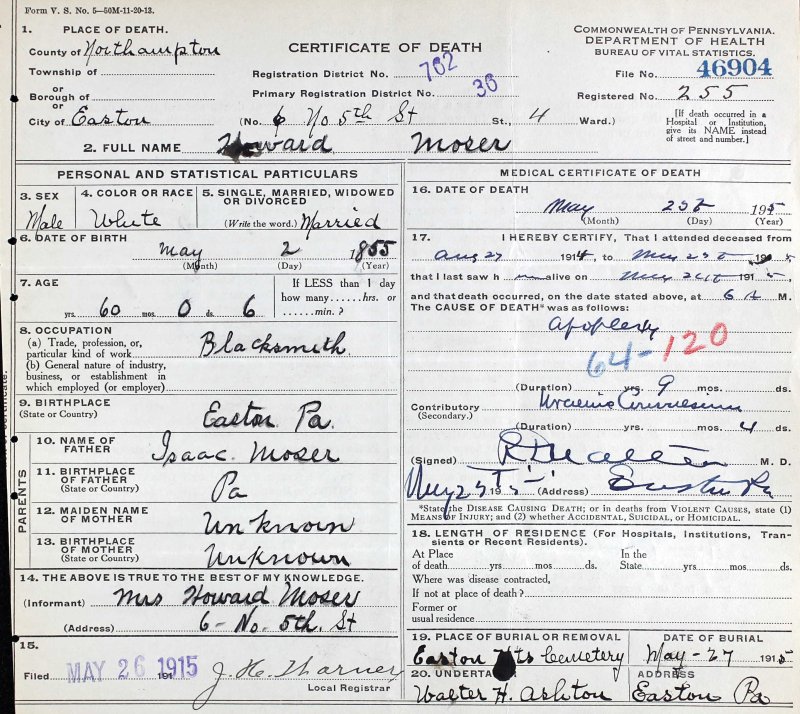 Form V. S. No. 5—50M-11-20-13.
1. PLACE OF DEATH.
County of Northampton
Township of
or
Borough of
or
City of Easton
CERTIFICATE OF DEATH
Registration District No. 762
Primary Registration District No. 36
(No. 6 No 5th St St., 4 Ward.)
COMMONWEALTH OF PENNSYLVANIA.
DEPARTMENT OF HEALTH
BUREAU OF VITAL STATISTICS.
File No. 46904
Registered No. 255
[If death occurred in a
Hospital or Institution,
give its NAME instead
of street and number.]
2. FULL NAME Howard Moser
PERSONAL AND STATISTICAL PARTICULARS
3. SEX
Male
4. COLOR OR RACE
White
5. SINGLE, MARRIED, WIDOWED
OR DIVORCED
(Write the word.) Married
6. DATE OF BIRTH
May 2 1855
(Month) (Day) (Year)
7. AGE
60 yrs. 0 mos. 6
If LESS than 1 day
how many......hrs. or
......min.?
8. OCCUPATION
(a) Trade, profession, or,
particular kind of work Blacksmith
(b) General nature of industry,
business, or establishment in
which employed (or employer)
9. BIRTHPLACE
(State or Country) Easton Pa.
PARENTS
10. NAME OF
FATHER Isaac Moser
11. BIRTHPLACE
OF FATHER
(State or Country) Pa
12. MAIDEN NAME
OF MOTHER Unknown
13. BIRTHPLACE
OF MOTHER
(State or Country) Unknown
14. THE ABOVE IS TRUE TO THE BEST OF MY KNOWLEDGE.
(Informant) Mrs Howard Moser
(Address) 6-No. 5th. St
15.
Filed MAY 26 1915 191
J. H.
Local Registrar
MEDICAL CERTIFICATE OF DEATH
16. DATE OF DEATH
May 25 1915
(Month) (Day) (Year)
17. I HEREBY CERTIFY, That I attended deceased from
Aug 27 1914, to May 25 1915
that I last saw h alive on May 191 5,
and that death occurred, on the date stated above, at 6 A M.
The CAUSE OF DEATH* was as follows:
Apoplexy
64-120
(Duration) yrs. 9 mos. ds.
Contributory
(Secondary.)
(Duration) yrs. mos. 4 ds.
(Signed) M. D.
May 25 191 5 (Address) Easton Pa
*State the DISEASE CAUSING DEATH; or in deaths from VIOLENT CAUSES, state (1)
MEANS OF INJURY; and (2) whether ACCIDENTAL, SUICIDAL, or HOMICIDAL.
18. LENGTH OF RESIDENCE (For Hospitals, Institutions, Tran-
sients or Recent Residents).
At Place In the
of death yrs. mos. ds. State yrs. mos. ds.
Where was disease contracted,
If not at place of death?
Former or
usual residence
19. PLACE OF BURIAL OR REMOVAL
Easton Hts Cemetery
DATE OF BURIAL
May-27 1915
20. UNDERTAKER
Walter H. Ashton
ADDRESS
Easton Pa